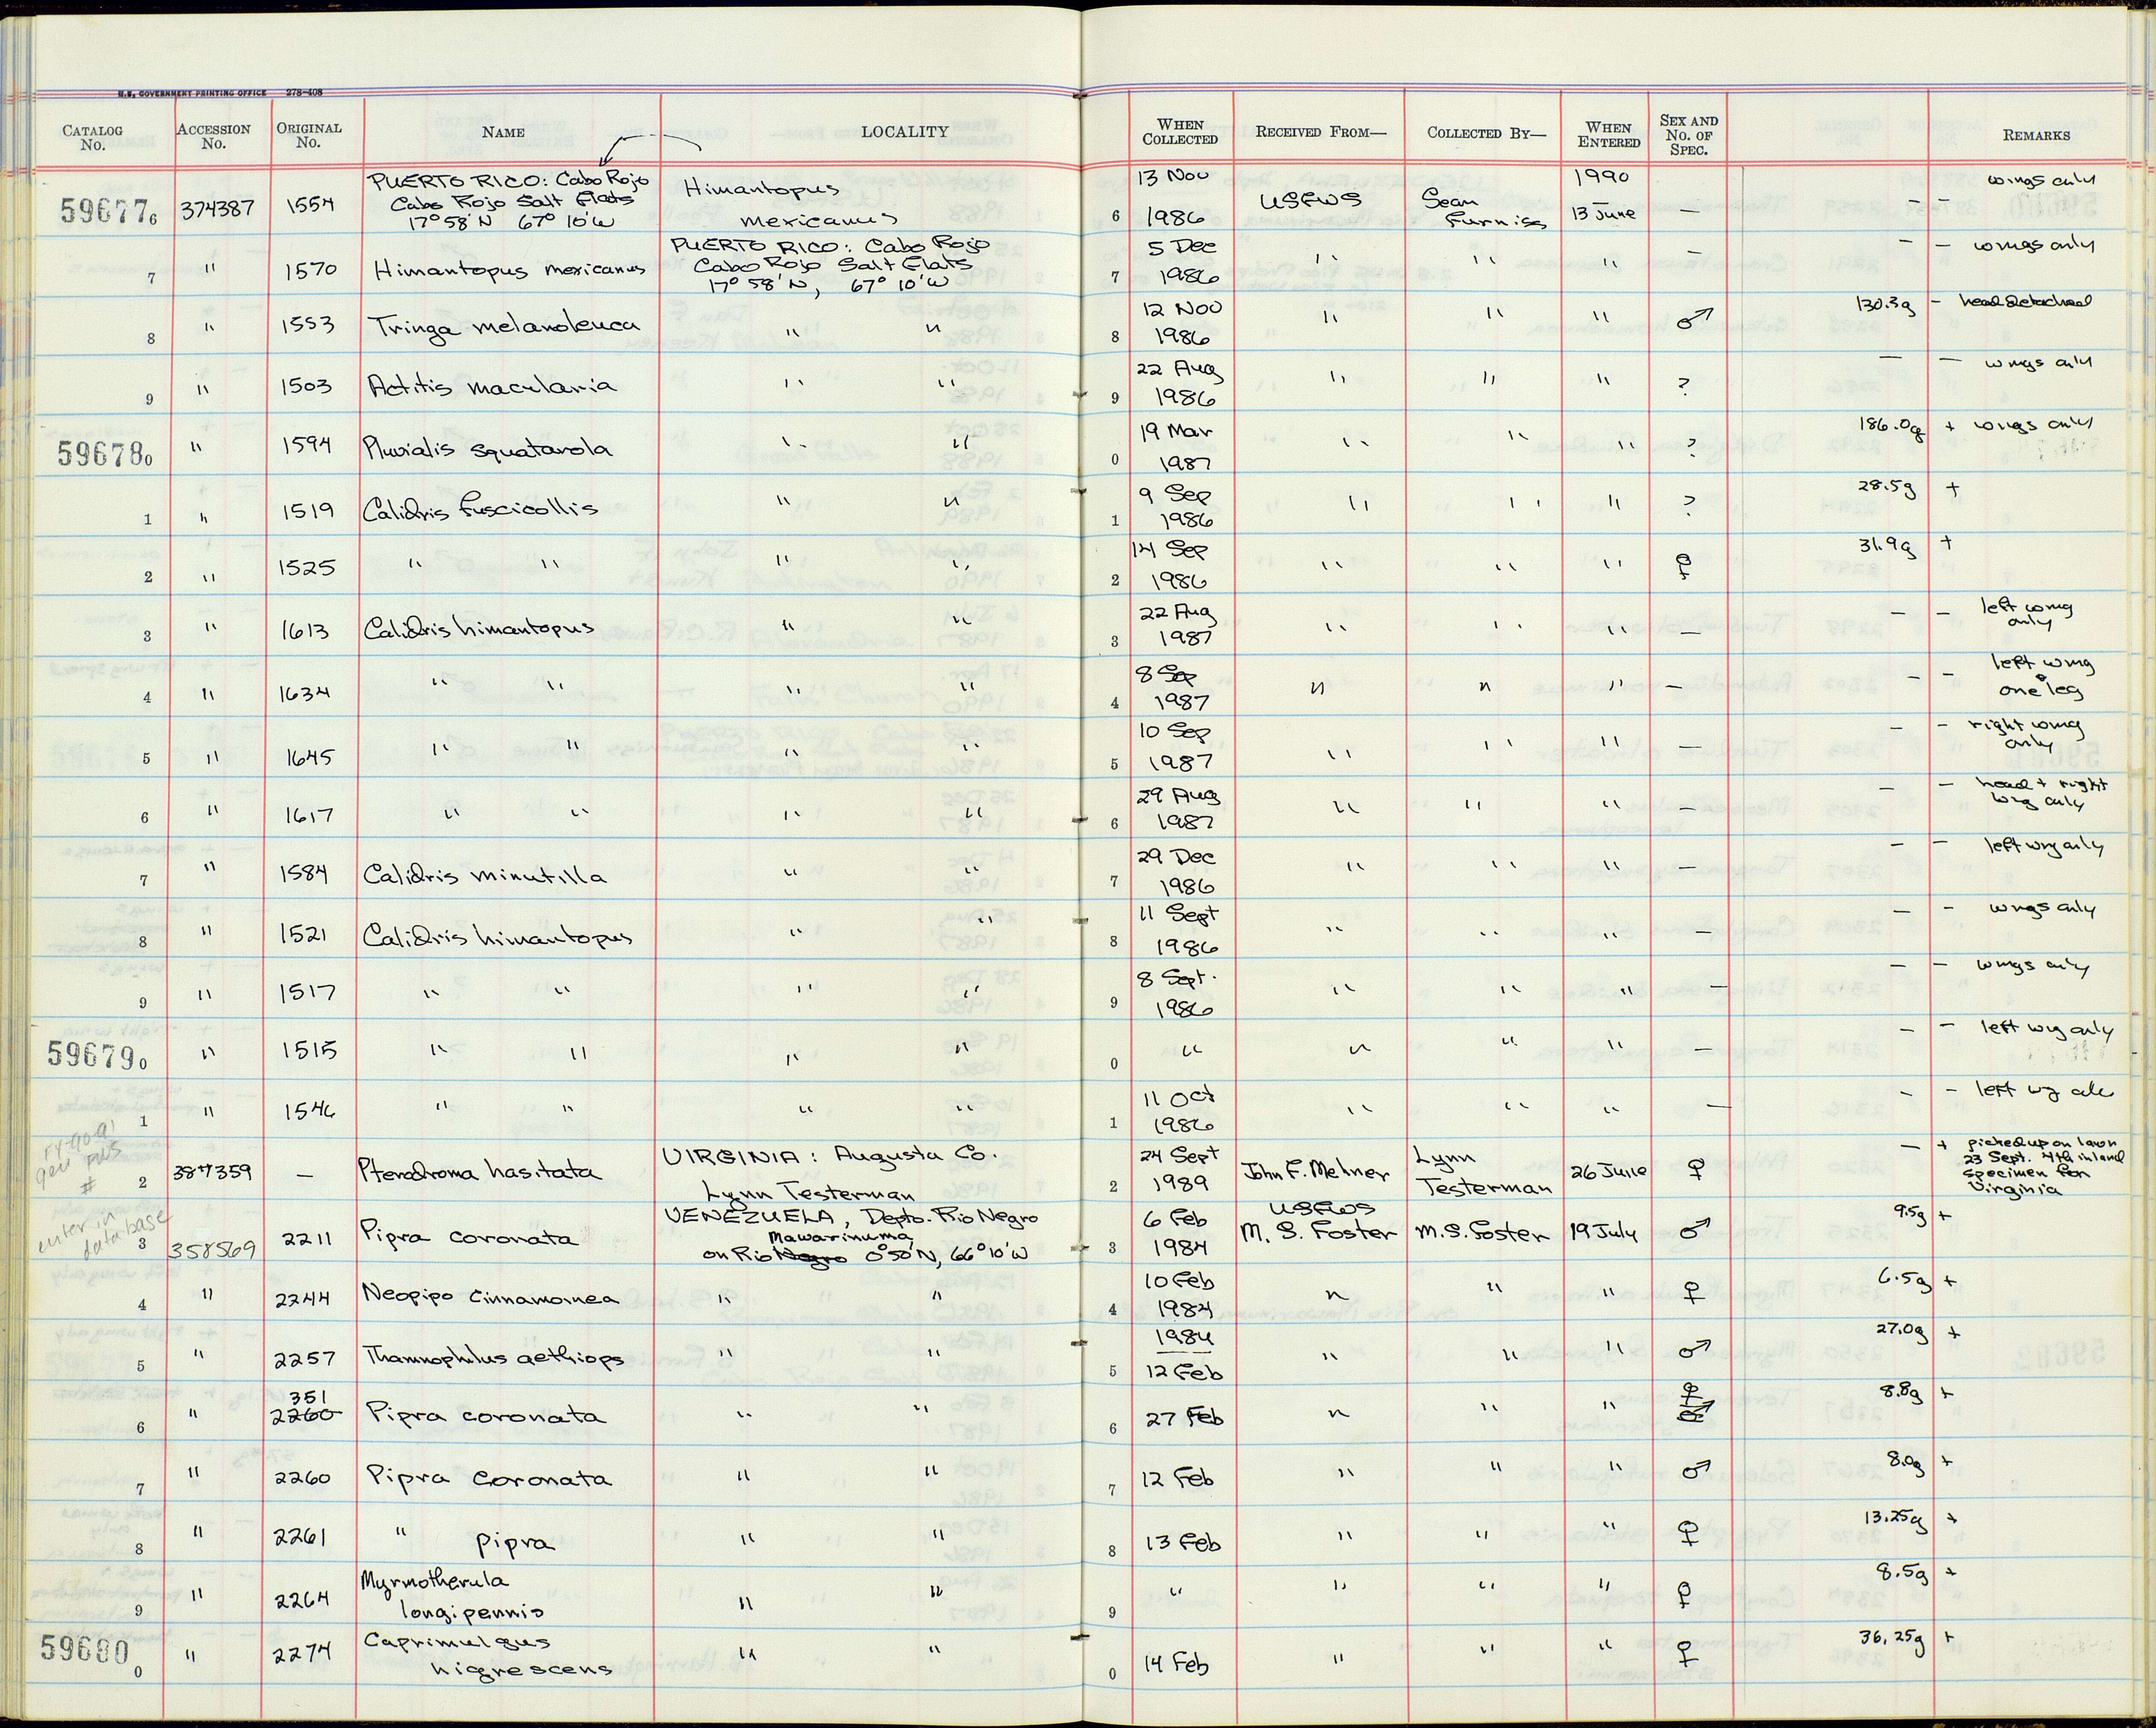 U.S. GOVERNMENT PRINTING OFFICE 278-408
CATALOG No. ACCESSION No. ORIGINAL No. NAME LOCALITY WHEN COLLECTED RECEIVED FROM— COLLECTED BY— WHEN ENTERED SEX AND No. OF SPEC. REMARKS
596776 374387 1554 PUERTO RICO: Cabo Rojo Cabo Rojo Salt Flats 17° 58' N 67° 10' W Himantopus mexicanus 6 13 Nov 1986 USFWS Sean Furniss 1990 13 June — – – wings only
7 " 1570 Himantopus mexicanus PUERTO RICO: Cabo Rojo Cabo Rojo Salt Flats 17° 58' N, 67° 10' W 7 5 Dec 1986 " " " — – – wings only
8 " 1553 Tringa melanoleuca " " 8 12 Nov 1986 " " " ♂ 130.3g – head detached
9 " 1503 Actitis macularia " " 9 22 Aug 1986 " " " ? — — wings only
596780 " 1594 Pluvialis squatarola " " 0 19 Mar 1987 " " " ? 186.0g + wings only
1 " 1519 Calidris fuscicollis " " 1 9 Sep 1986 " " " ? 28.5g +
2 " 1525 " " " " 2 14 Sep 1986 " " " ♀ 31.9g +
3 " 1613 Calidris himantopus " " 3 22 Aug 1987 " " " — – – left wing only
4 " 1634 " " " " 4 8 Sep 1987 " " " — – – left wing & one leg
5 " 1645 " " " " 5 10 Sep 1987 " " " — – – right wing only
6 " 1617 " " " " 6 29 Aug 1987 " " " — – – head + right wing only
7 " 1584 Calidris minutilla " " 7 29 Dec 1986 " " " — – – left wing only
8 " 1521 Calidris himantopus " " 8 11 Sept 1986 " " " — – – wings only
9 " 1517 " " " " 9 8 Sept. 1986 " " " — – – wings only
596790 " 1515 " " " " 0 " " " " — – – left wing only
1 " 1546 " " " " 1 11 Oct 1986 " " " — – – left wg
FY-90-91
#
2 387359 — Pterodroma hasitata VIRGINIA: Augusta Co. Lynn Testerman 2 24 Sept 1989 John F. Mehner Lynn Testerman 26 June ♀ — + picked up on lawn 23 Sept. 4th inland specimen for Virginia
enter in database
3 358569 2211 Pipra coronata VENEZUELA, Depto. Rio Negro on Rio Negro Mawarinuma 0°50'N, 66°10'W 3 6 Feb 1984 USFWS M. S. Foster M.S. Foster 19 July ♂ 9.5g +
4 " 2244 Neopipo cinnamomea " " 4 10 Feb 1984 " " " ♀ 6.5g +
5 " 2257 Thamnophilus aethiops " " 5 1984 12 Feb " " " ♂ 27.0g +
6 " 351 2260 Pipra coronata " " 6 27 Feb " " " ♀ ♂ 8.8g +
7 " 2260 Pipra coronata " " 7 12 Feb " " " ♂ 8.0g +
8 " 2261 " pipra " " 8 13 Feb " " " ♀ 13.25g +
9 " 2264 Myrmotherula longipennis " " 9 " " " " ♀ 8.5g +
596800 " 2274 Caprimulgus nigrescens " " 0 14 Feb " " " ♀ 36.25g +